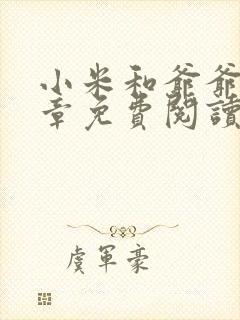 小米和爺爺
章免費閱讀
虞軍豪